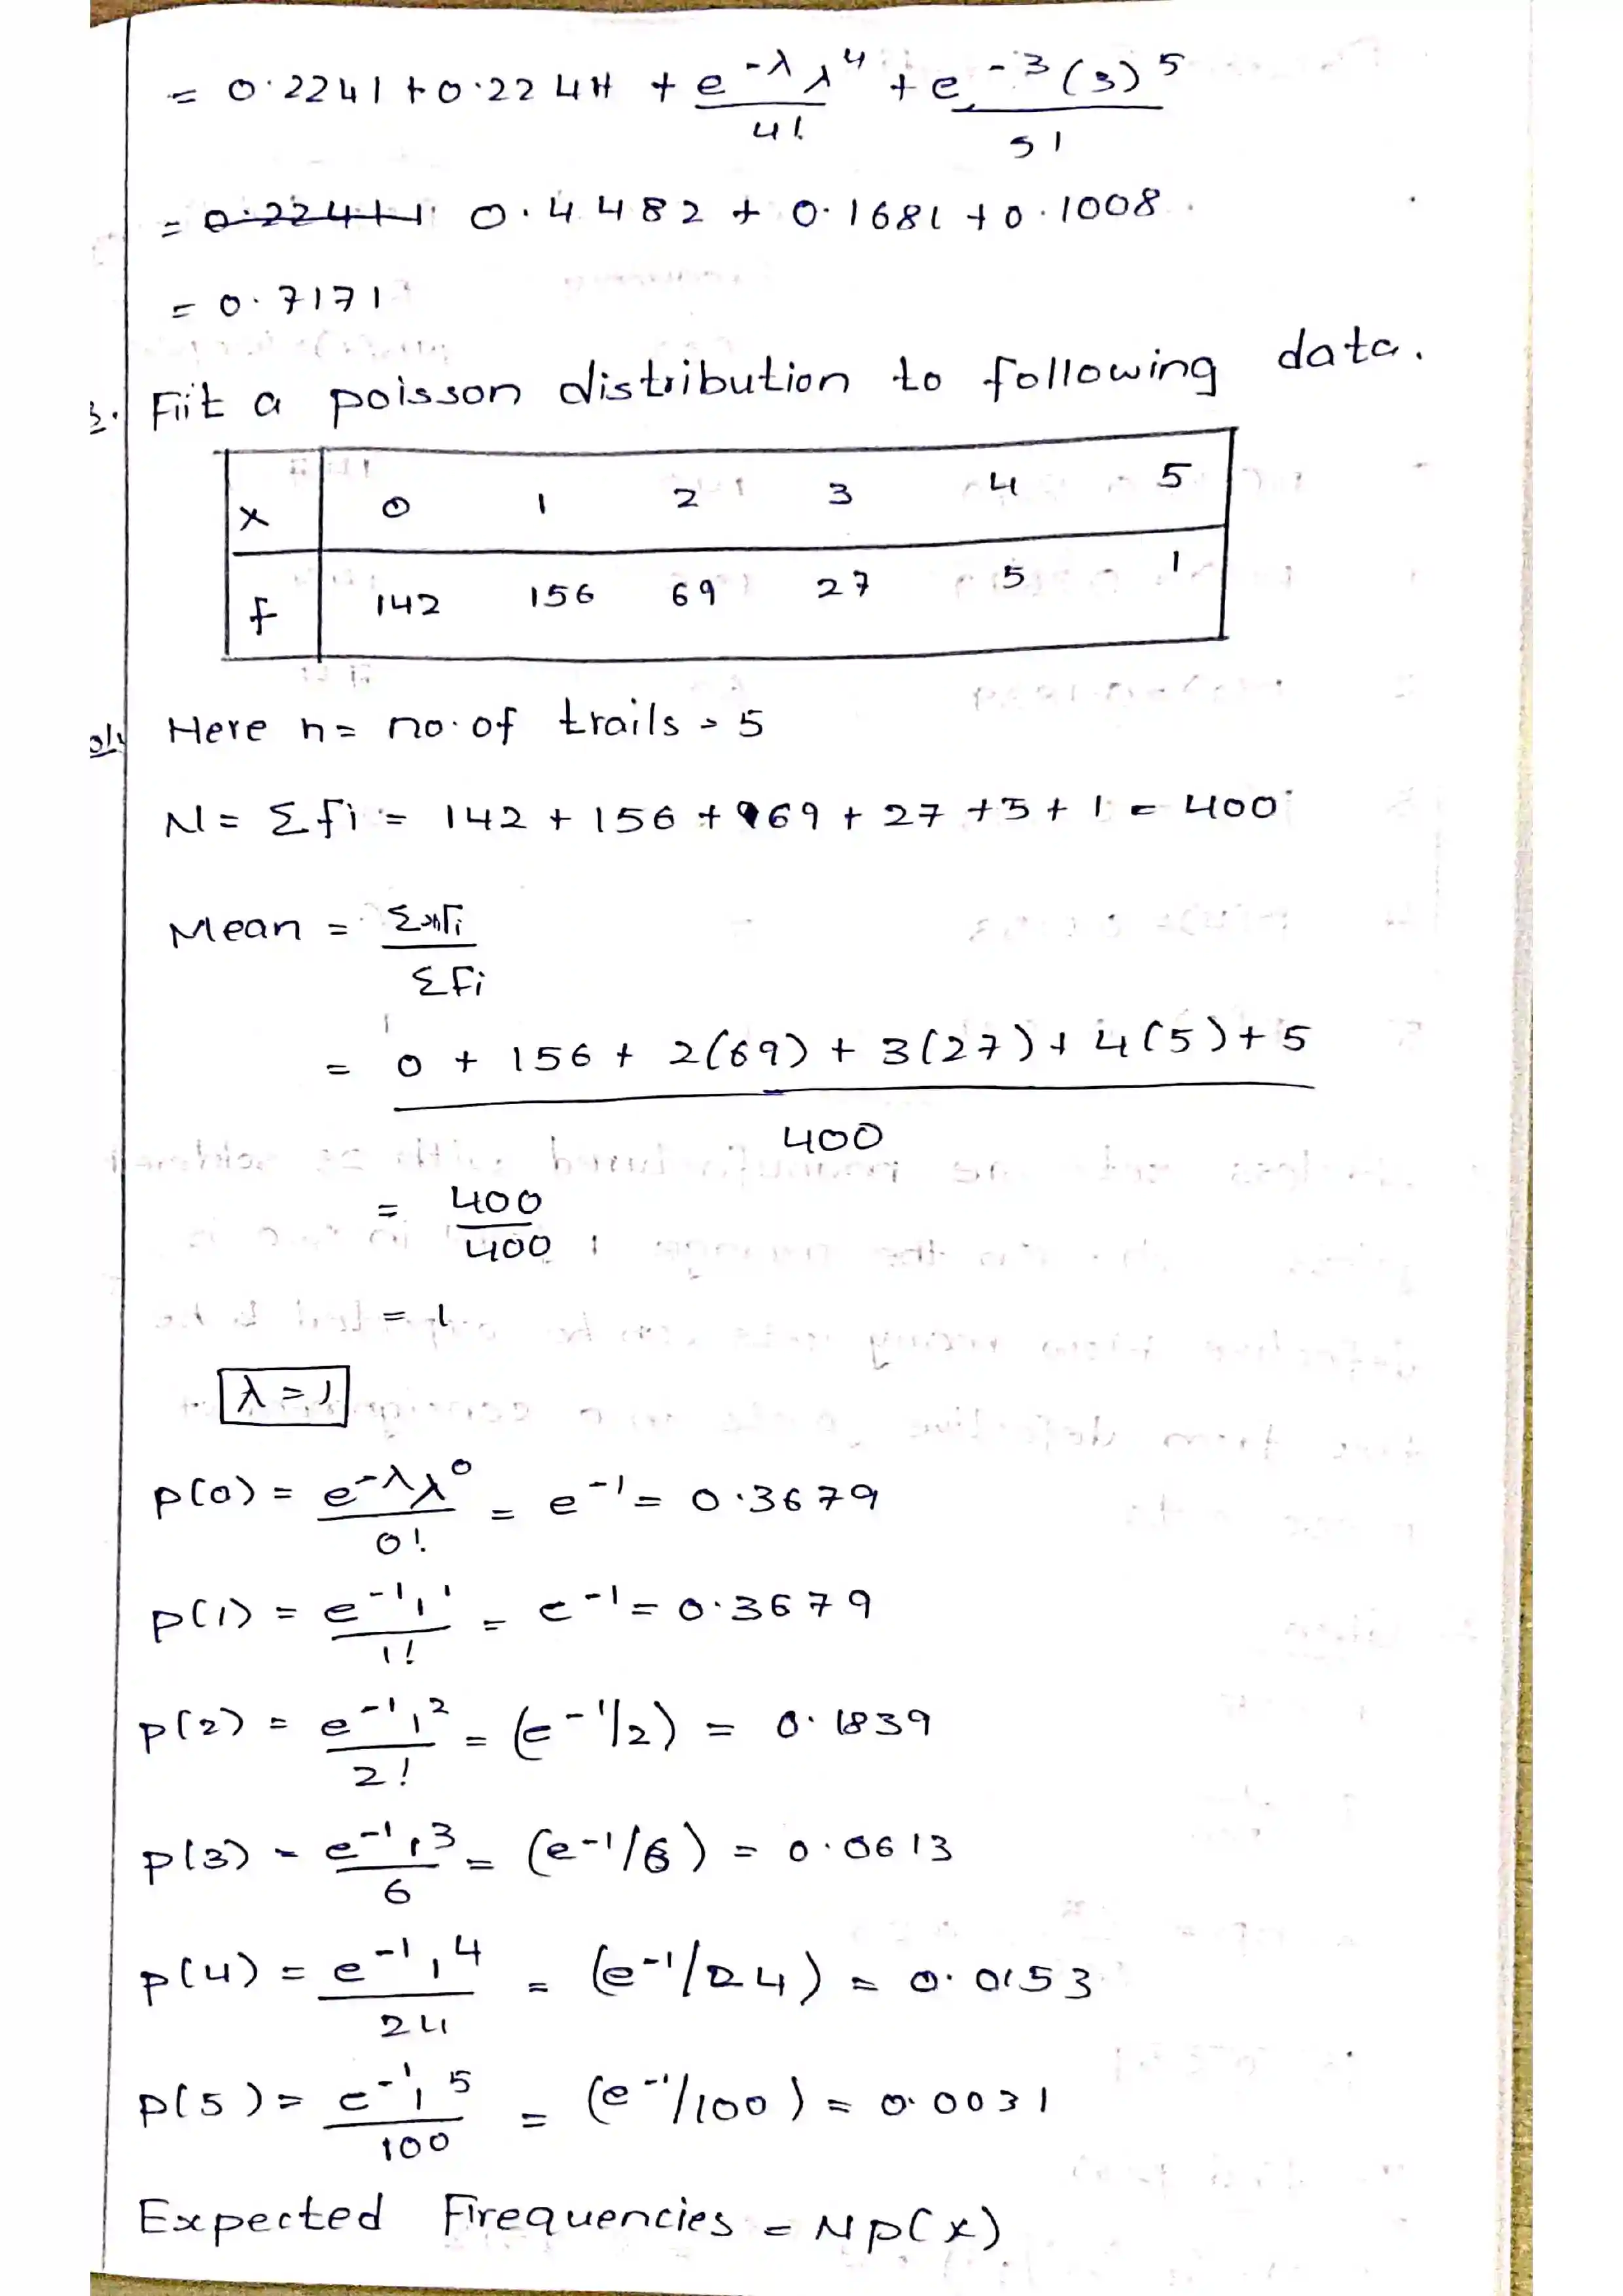 = 0.2241 + 0.2241 + e^-λ λ^4 / 4! + e^-3 (3)^5 / 5!
= 0.4482 + 0.1681 + 0.1008
= 0.7171
3. Fiit a poisson distribution to following data.
x 0 1 2 3 4 5
f 142 156 69 27 5 1
Here n = no. of trails = 5
N = Σfi = 142 + 156 + 69 + 27 + 5 + 1 = 400
Mean = Σxifi / Σfi
= 0 + 156 + 2(69) + 3(27) + 4(5) + 5 / 400
= 400 / 400
= 1
λ = 1
p(0) = e^-λ λ^0 / 0! = e^-1 = 0.3679
p(1) = e^-1 1^1 / 1! = e^-1 = 0.3679
p(2) = e^-1 1^2 / 2! = (e^-1/2) = 0.1839
p(3) = e^-1 1^3 / 6 = (e^-1/6) = 0.0613
p(4) = e^-1 1^4 / 24 = (e^-1/24) = 0.0153
p(5) = e^-1 1^5 / 100 = (e^-1/100) = 0.0031
Expected Frequencies = N p(x)